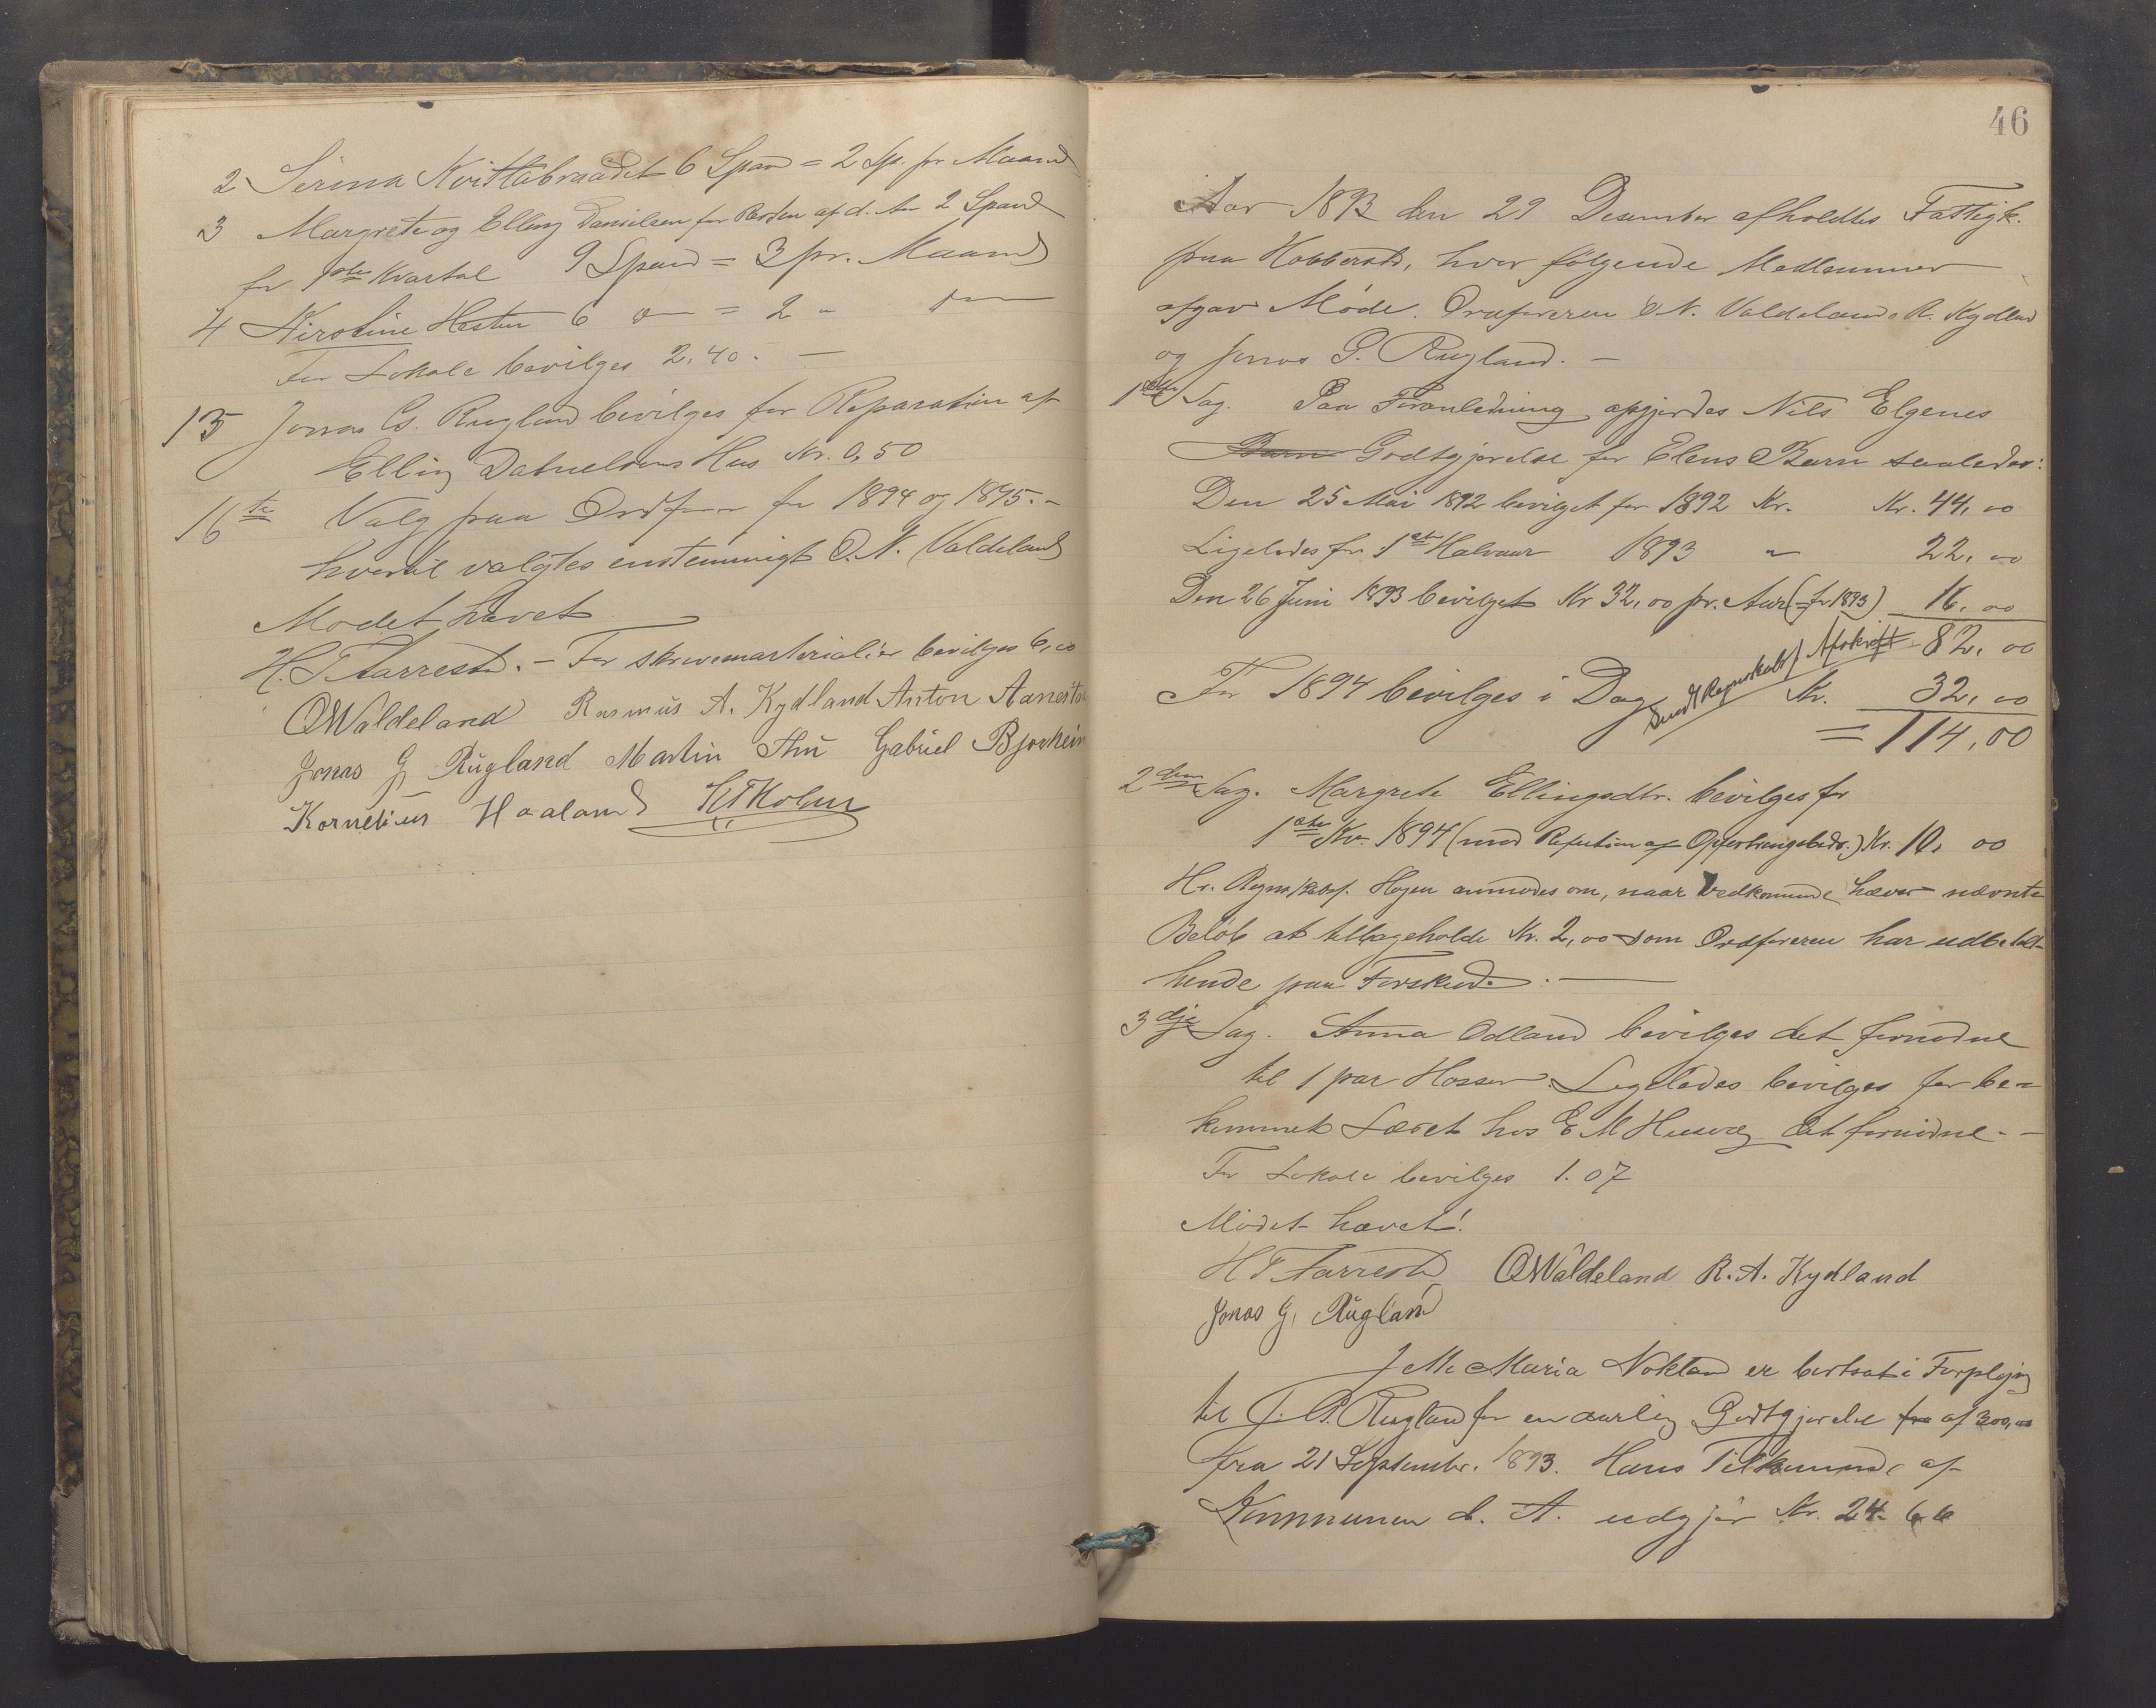 2 Serina Kvittabraadet 6 Span = 2 Sp. pr Maaned
3 Margrete og Elling Danielsen for Resten af d. Aar 2 Spand
for 1ste Kvartal 9 Spand = 3 pr. Maaned
4 Kirstine Hesten 6 do = 2 " do
For Lokale bevilges 2,40. —
15 Jonas G. Rugland bevilges for Reparation af
Elling Danielsens Hus Kr. 0,50
16te Valg paa Ordfører for 1894 og 1895. -
hvortil valgtes enstemmigt O. N. Valdeland
Mødet hævet
H. T. Aarrestad. — For skrivematerialier bevilges 6,00
ONValdeland Rasmus A. Kydland Anton Aanesta
Jonas G Rugland Martin Thu Gabriel Bjorheim
Kornelius Haaland
46
Aar 1893 den 29 Desember afholdtes Fattigk.
paa Hobberstd, hvor følgende Medlemmer
afgav Møde. Ordføreren O N. Valdeland, R. Kydland
og Jonas G. Rugland. —
1ste Sag. Paa Foranledning opgjordes Nils Elgenes
Barn Godtgjørelse for Elens Barn saaledes:
Den 25 Mai 1892 bevilget for 1892 Kr. Kr. 44,00
Ligeledes for 1ste Halvaar 1893 " 22,00
Den 26 Juni 1893 bevilget Kr 32,00 pr. Aar (= for 1893) 16,00
82,00
Sendt Regnskabsf. Afskrift
For 1894 bevilges i Dag Kr. 32,00
= 114,00
2den Sag. Margrete Ellingsdtr. bevilges for
1ste Kv. 1894 (mod Refution af Opfostringsbidr.) Kr. 10,00
Hr. Regnskabsf. Hogen anmodes om, naar Vedkommende hæver nævnte
Beløb at tilbageholde Kr. 2,00 som Ordføreren har udbetalt
hende paa Forskud. —
3dje Sag. Anna Odland bevilges det fornødne
til 1 par Hosser. Ligeledes bevilges for be=
kommet Læret hos E M Husveg det fornødne. —
For Lokale bevilges 1.07
Mødet hævet!
H T Aarrestad ONValdeland R. A. Kydland
Jonas G. Rugland
Maria Nokland er bortsat i Forplejning
til J. G. Rugland for en aarlig Godtgjørelse fra af 300,00
fra 21 September. 1893. Hans Tilkommende af
Kommunen d. A. udgjør Kr. 24.66